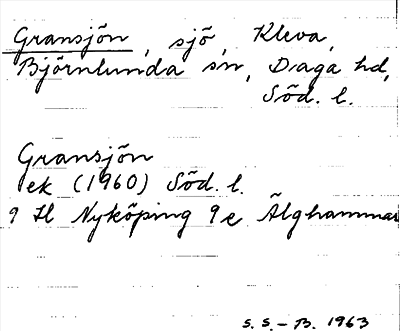 Gransjön, sjö, Kleva,
Björnlunda sn, Daga hd,
Söd. l.
Gransjön
ek (1960) Söd. l.
9 H Nyköping 9 e Älghammar
S. S.-B. 1963